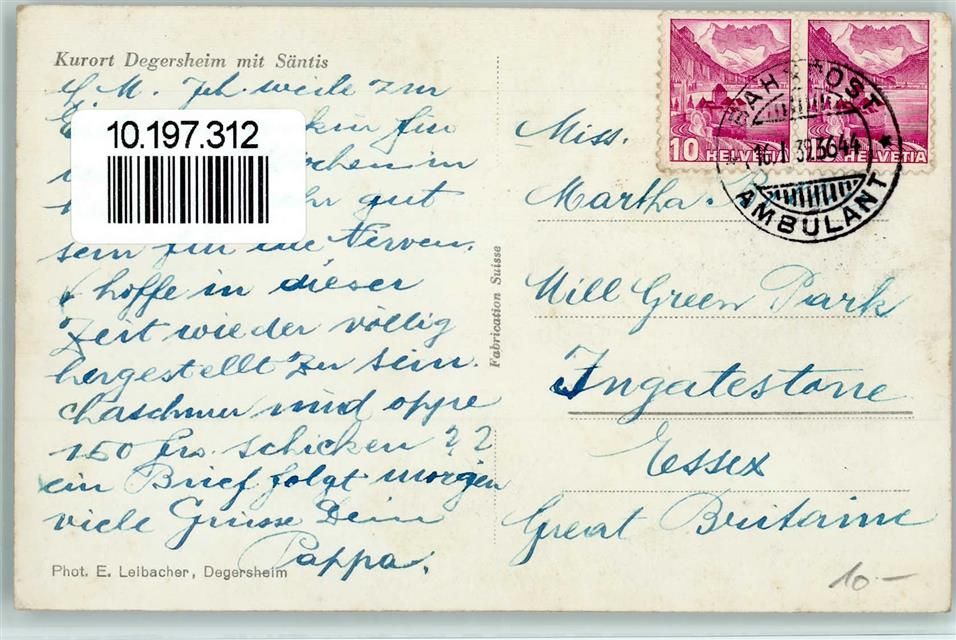 Kurort Degersheim mit Säntis
L. M. Ich weile zur
10.197.312
für
in
gut
sein für die Nerven.
hoffe in dieser
Zeit wieder völlig
hergestellt zu sein.
chaschmer nüd oppe
150 frs. schicken ??
ein Brief folgt morgen
viele Grüsse Dein
Pappa.
Phot. E. Leibacher, Degersheim
Fabrication Suisse
10 HELVETIA
HELVETIA
BAHNPOST
AMBULANT
Miss.
Martha
Mill Green Park
Ingatestone
Essex
Great Britaine
10.-